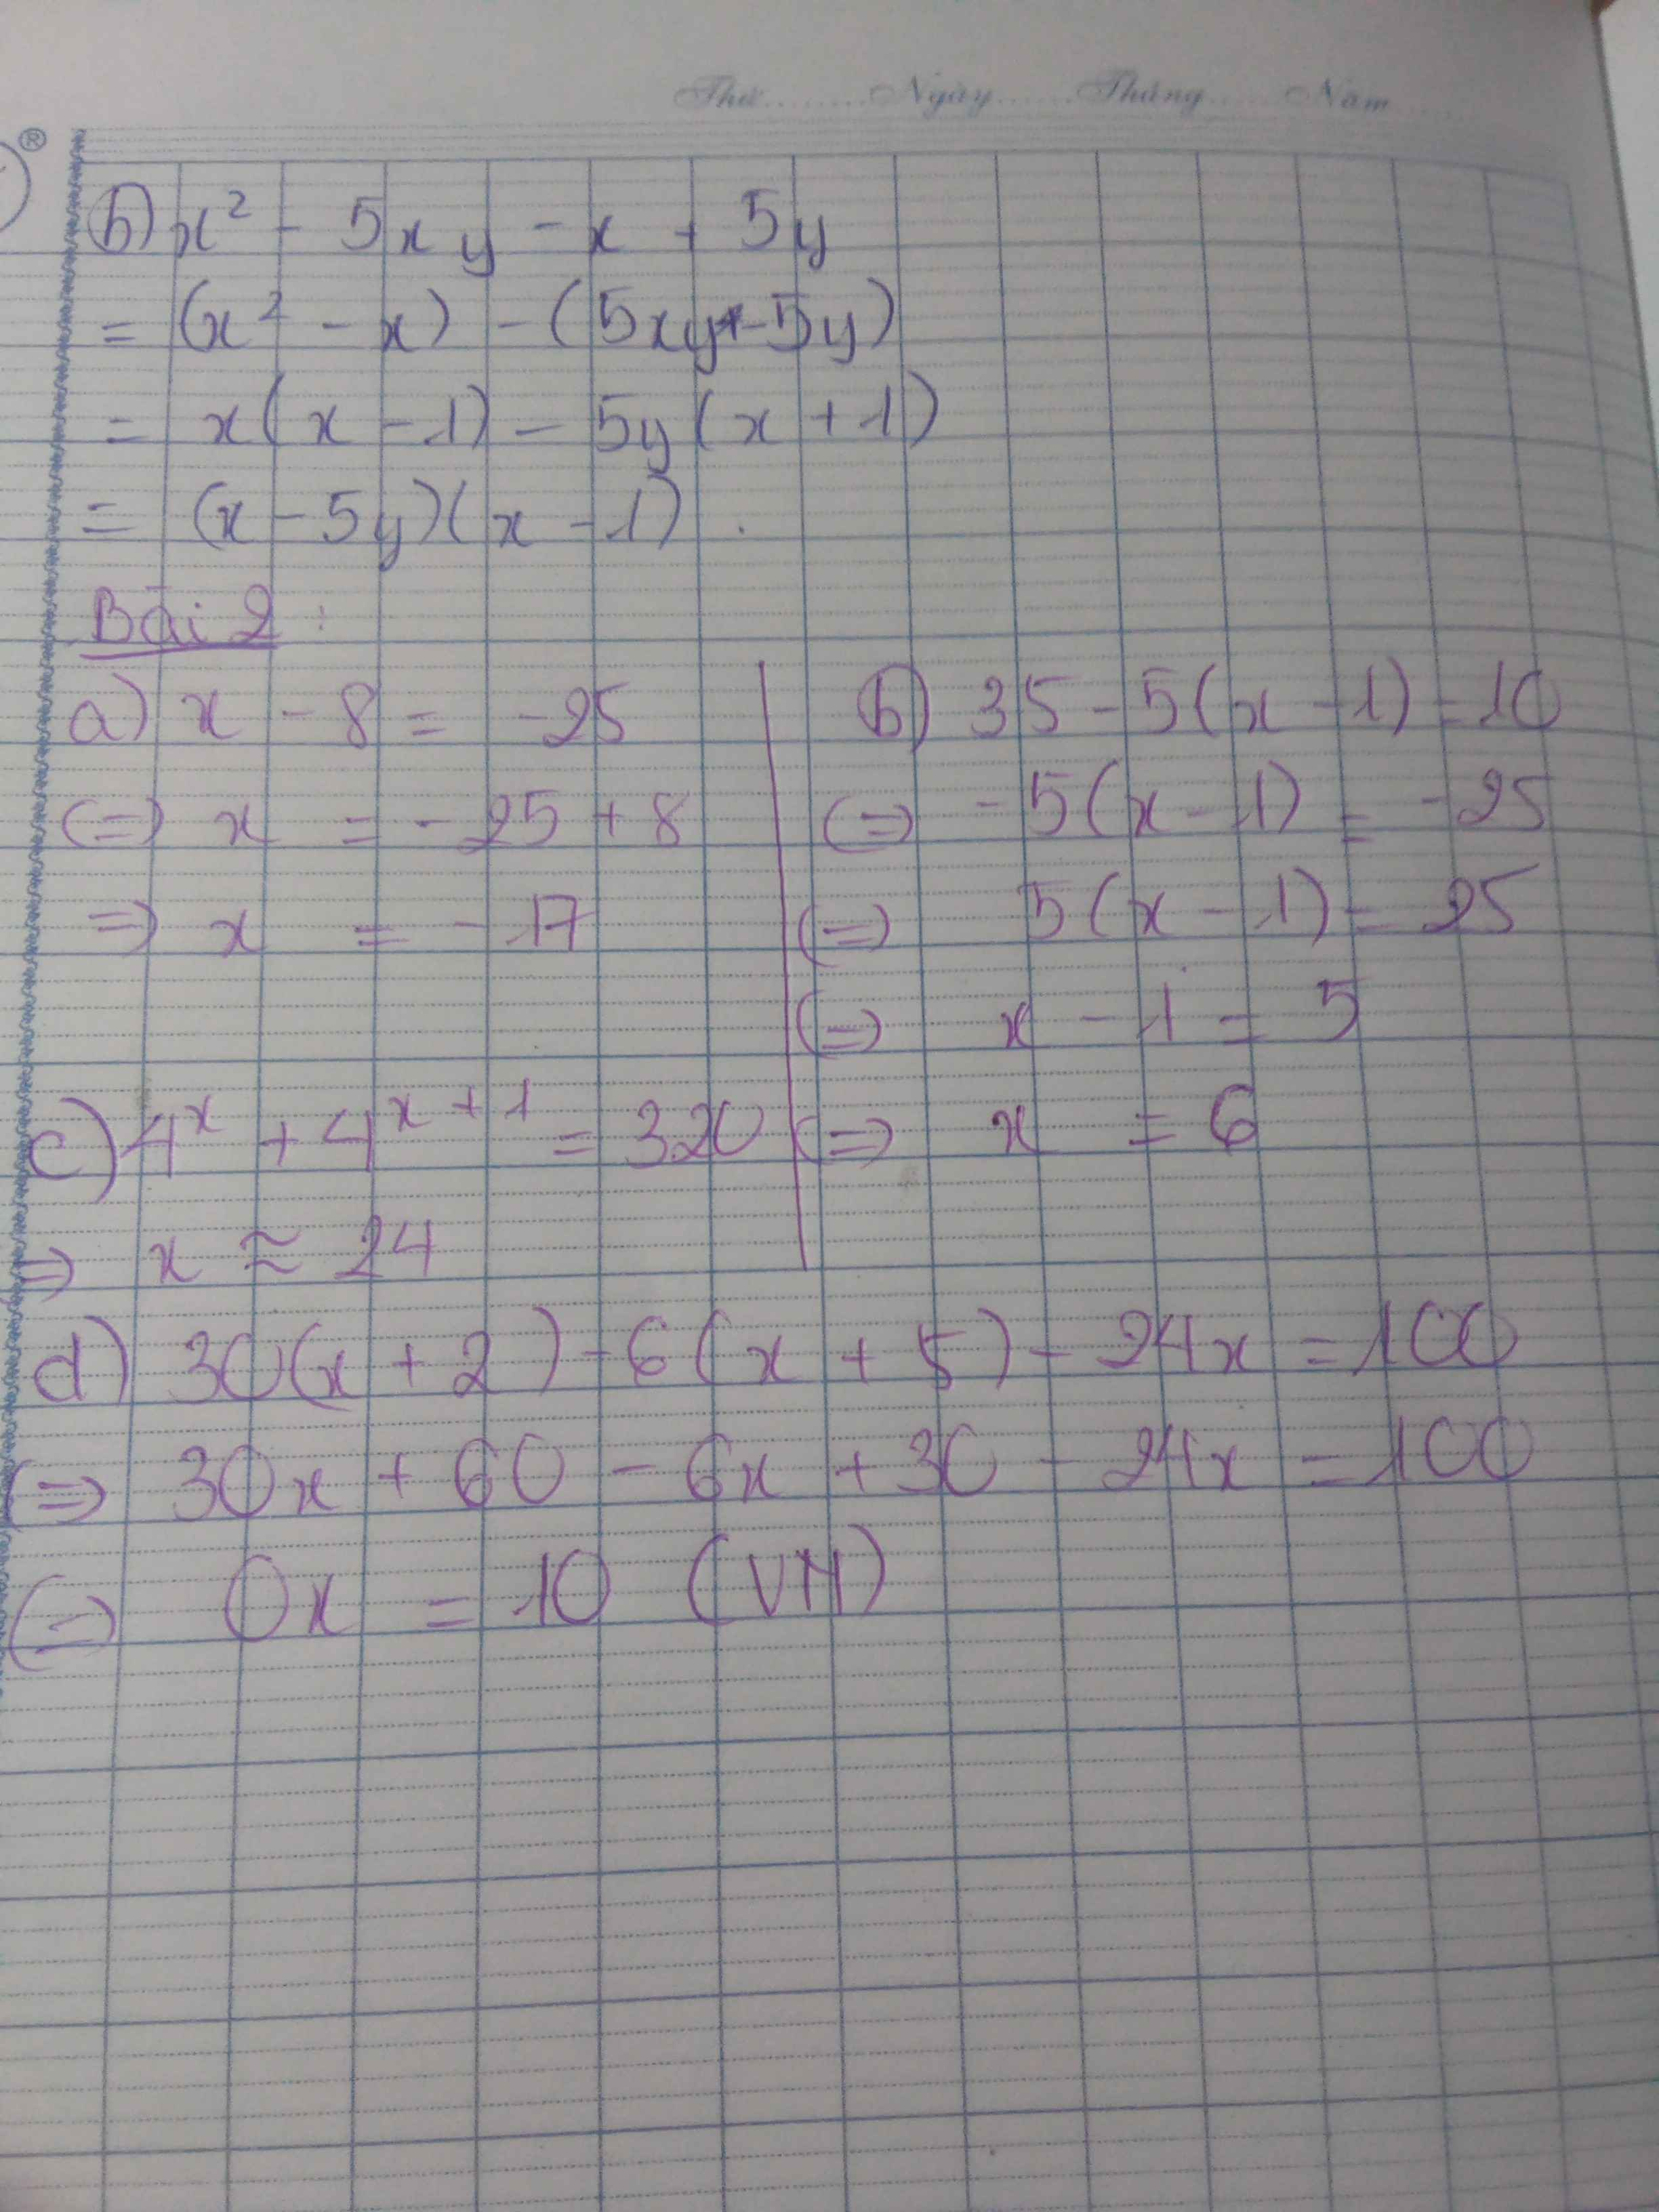 Thứ........Ngày......Tháng......Năm......
®
b) x² - 5xy - x + 5y
= (x² - x) - (5xy - 5y)
= x(x - 1) - 5y(x + 1)
= (x - 5y)(x - 1) .
Bài 2 :
a) x - 8 = -25
(=) x = - 25 + 8
=) x = - 17
b) 35 - 5(x - 1) = 10
(=) - 5(x - 1) = - 25
(=) 5(x - 1) = 25
(=) x - 1 = 5
(=) x = 6
c) 4ˣ + 4ˣ⁺¹ = 320
=) x ≈ 24
d) 30(x + 2) - 6(x + 5) - 24x = 100
(=) 30x + 60 - 6x + 30 - 24x = 100
(=) 0x = 10 (VN)